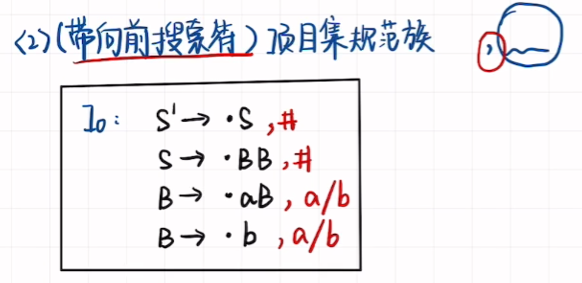 <2>(带向前搜索符)项目集规范族
I₀: S'→·S,#
S→·BB,#
B→·aB,a/b
B→·b,a/b